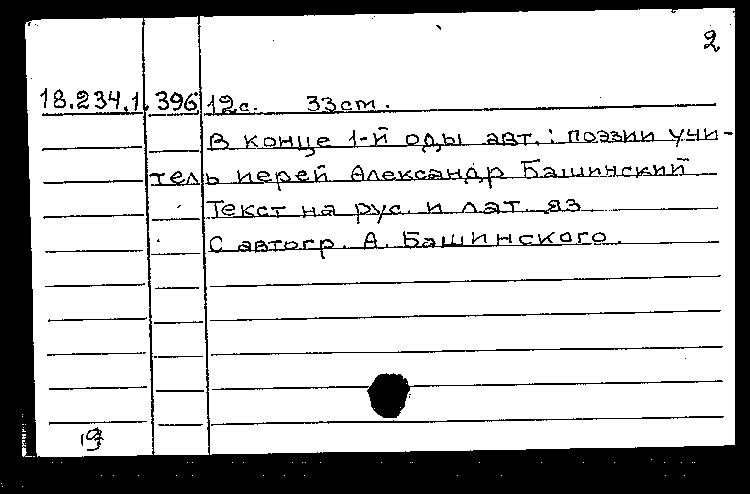 2
18.234.1.396 12с. 33см.
В конце 1-й оды авт.: поэзии учи-
тель иерей Александр Башинский
Текст на рус. и лат. яз.
С автогр. А. Башинского.